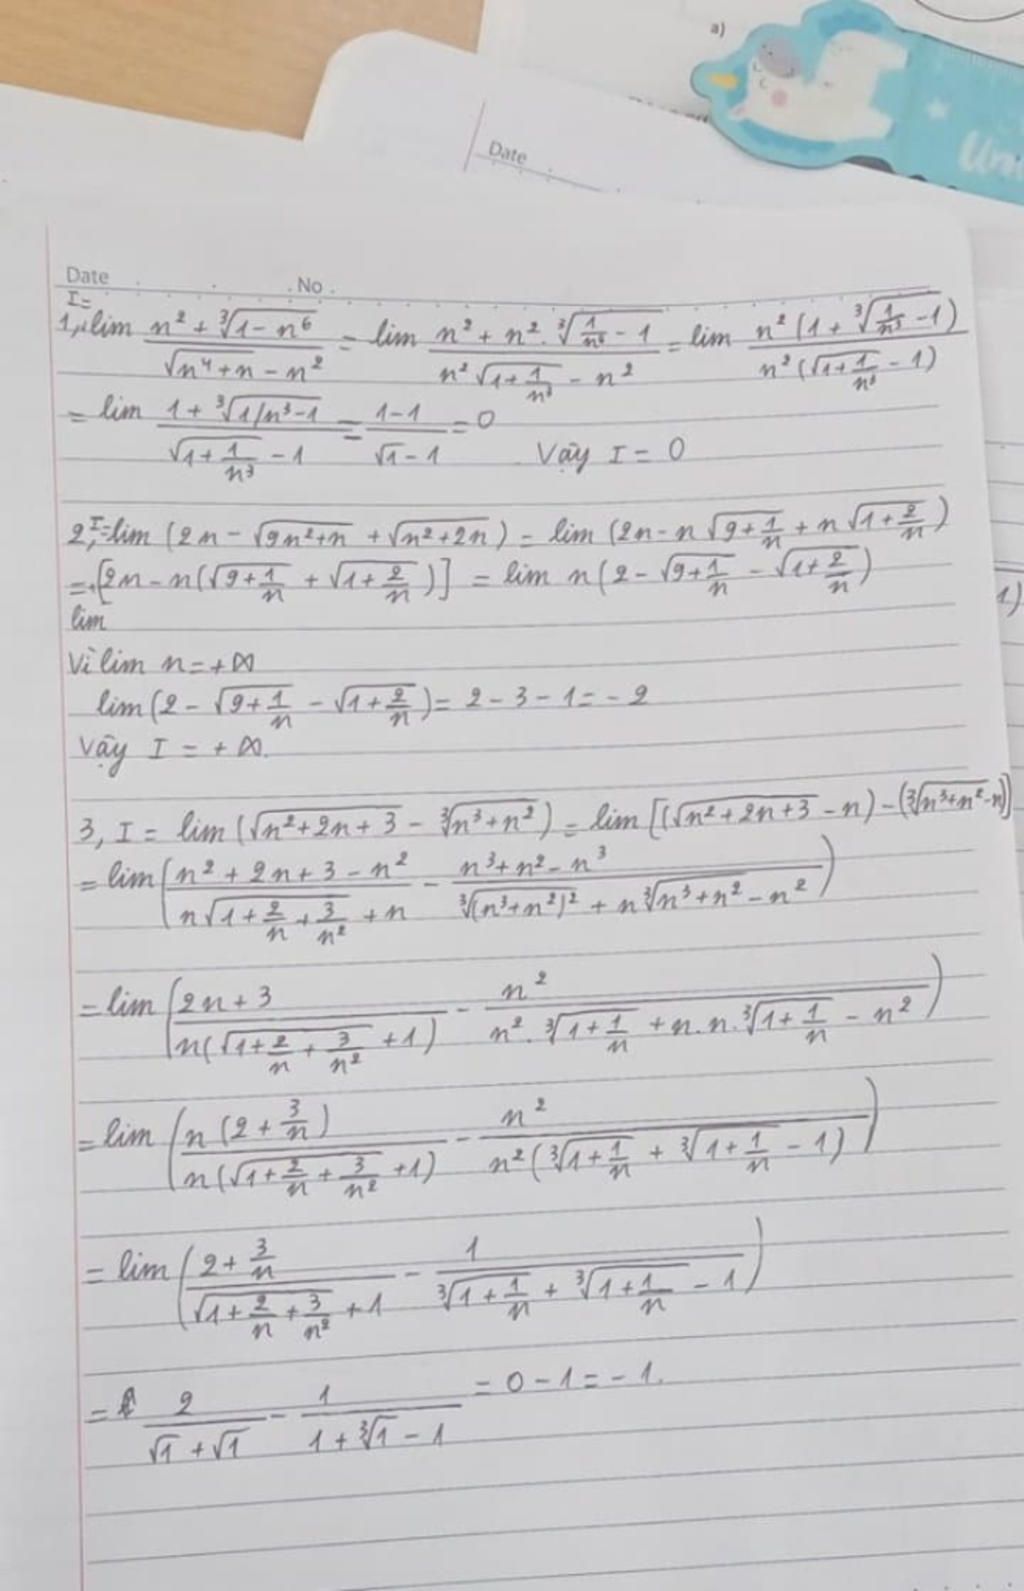 a)
Uni
Date
Date No.
I=
1, lim (n² + ∛(1-n⁶))/(√(n⁴+n) - n²) = lim (n² + n².∛(1/n⁶ - 1))/(n²√(1+1/n³) - n²) = lim (n²(1+∛(1/n³ -1)))/(n²(√(1+1/n³) - 1))
= lim (1+∛(1/n³-1))/(√(1+1/n³) - 1) = (1-1)/(√1 - 1) = 0 Vậy I = 0
2, I = lim (2n - √(9n²+n) + √(n²+2n)) = lim (2n - n√(9+1/n) + n√(1+2/n))
= [2n - n(√(9+1/n) + √(1+2/n))] = lim n(2 - √(9+1/n) - √(1+2/n))
lim
Vì lim n = +∞
lim (2 - √(9+1/n) - √(1+2/n)) = 2 - 3 - 1 = - 2
Vậy I = + ∞.
3, I = lim (√(n²+2n+3) - ∛(n³+n²)) = lim [(√(n²+2n+3) - n) - (∛(n³+n²) - n)]
= lim ((n²+2n+3-n²)/(n√(1+2/n+3/n²) + n) - (n³+n²-n³)/(∛(n³+n²)² + n∛(n³+n²) - n²))
= lim ((2n+3)/(n(√(1+2/n+3/n²) + 1)) - n²/(n².∛(1+1/n) + n.n.∛(1+1/n) - n²))
= lim (n(2+3/n)/(n(√(1+2/n+3/n²) + 1)) - n²/(n²(∛(1+1/n) + ∛(1+1/n) - 1)))
= lim ((2+3/n)/(√(1+2/n+3/n²) + 1) - 1/(∛(1+1/n) + ∛(1+1/n) - 1))
= 2/(√1+√1) - 1/(1+∛1-1) = 0 - 1 = - 1.
1)